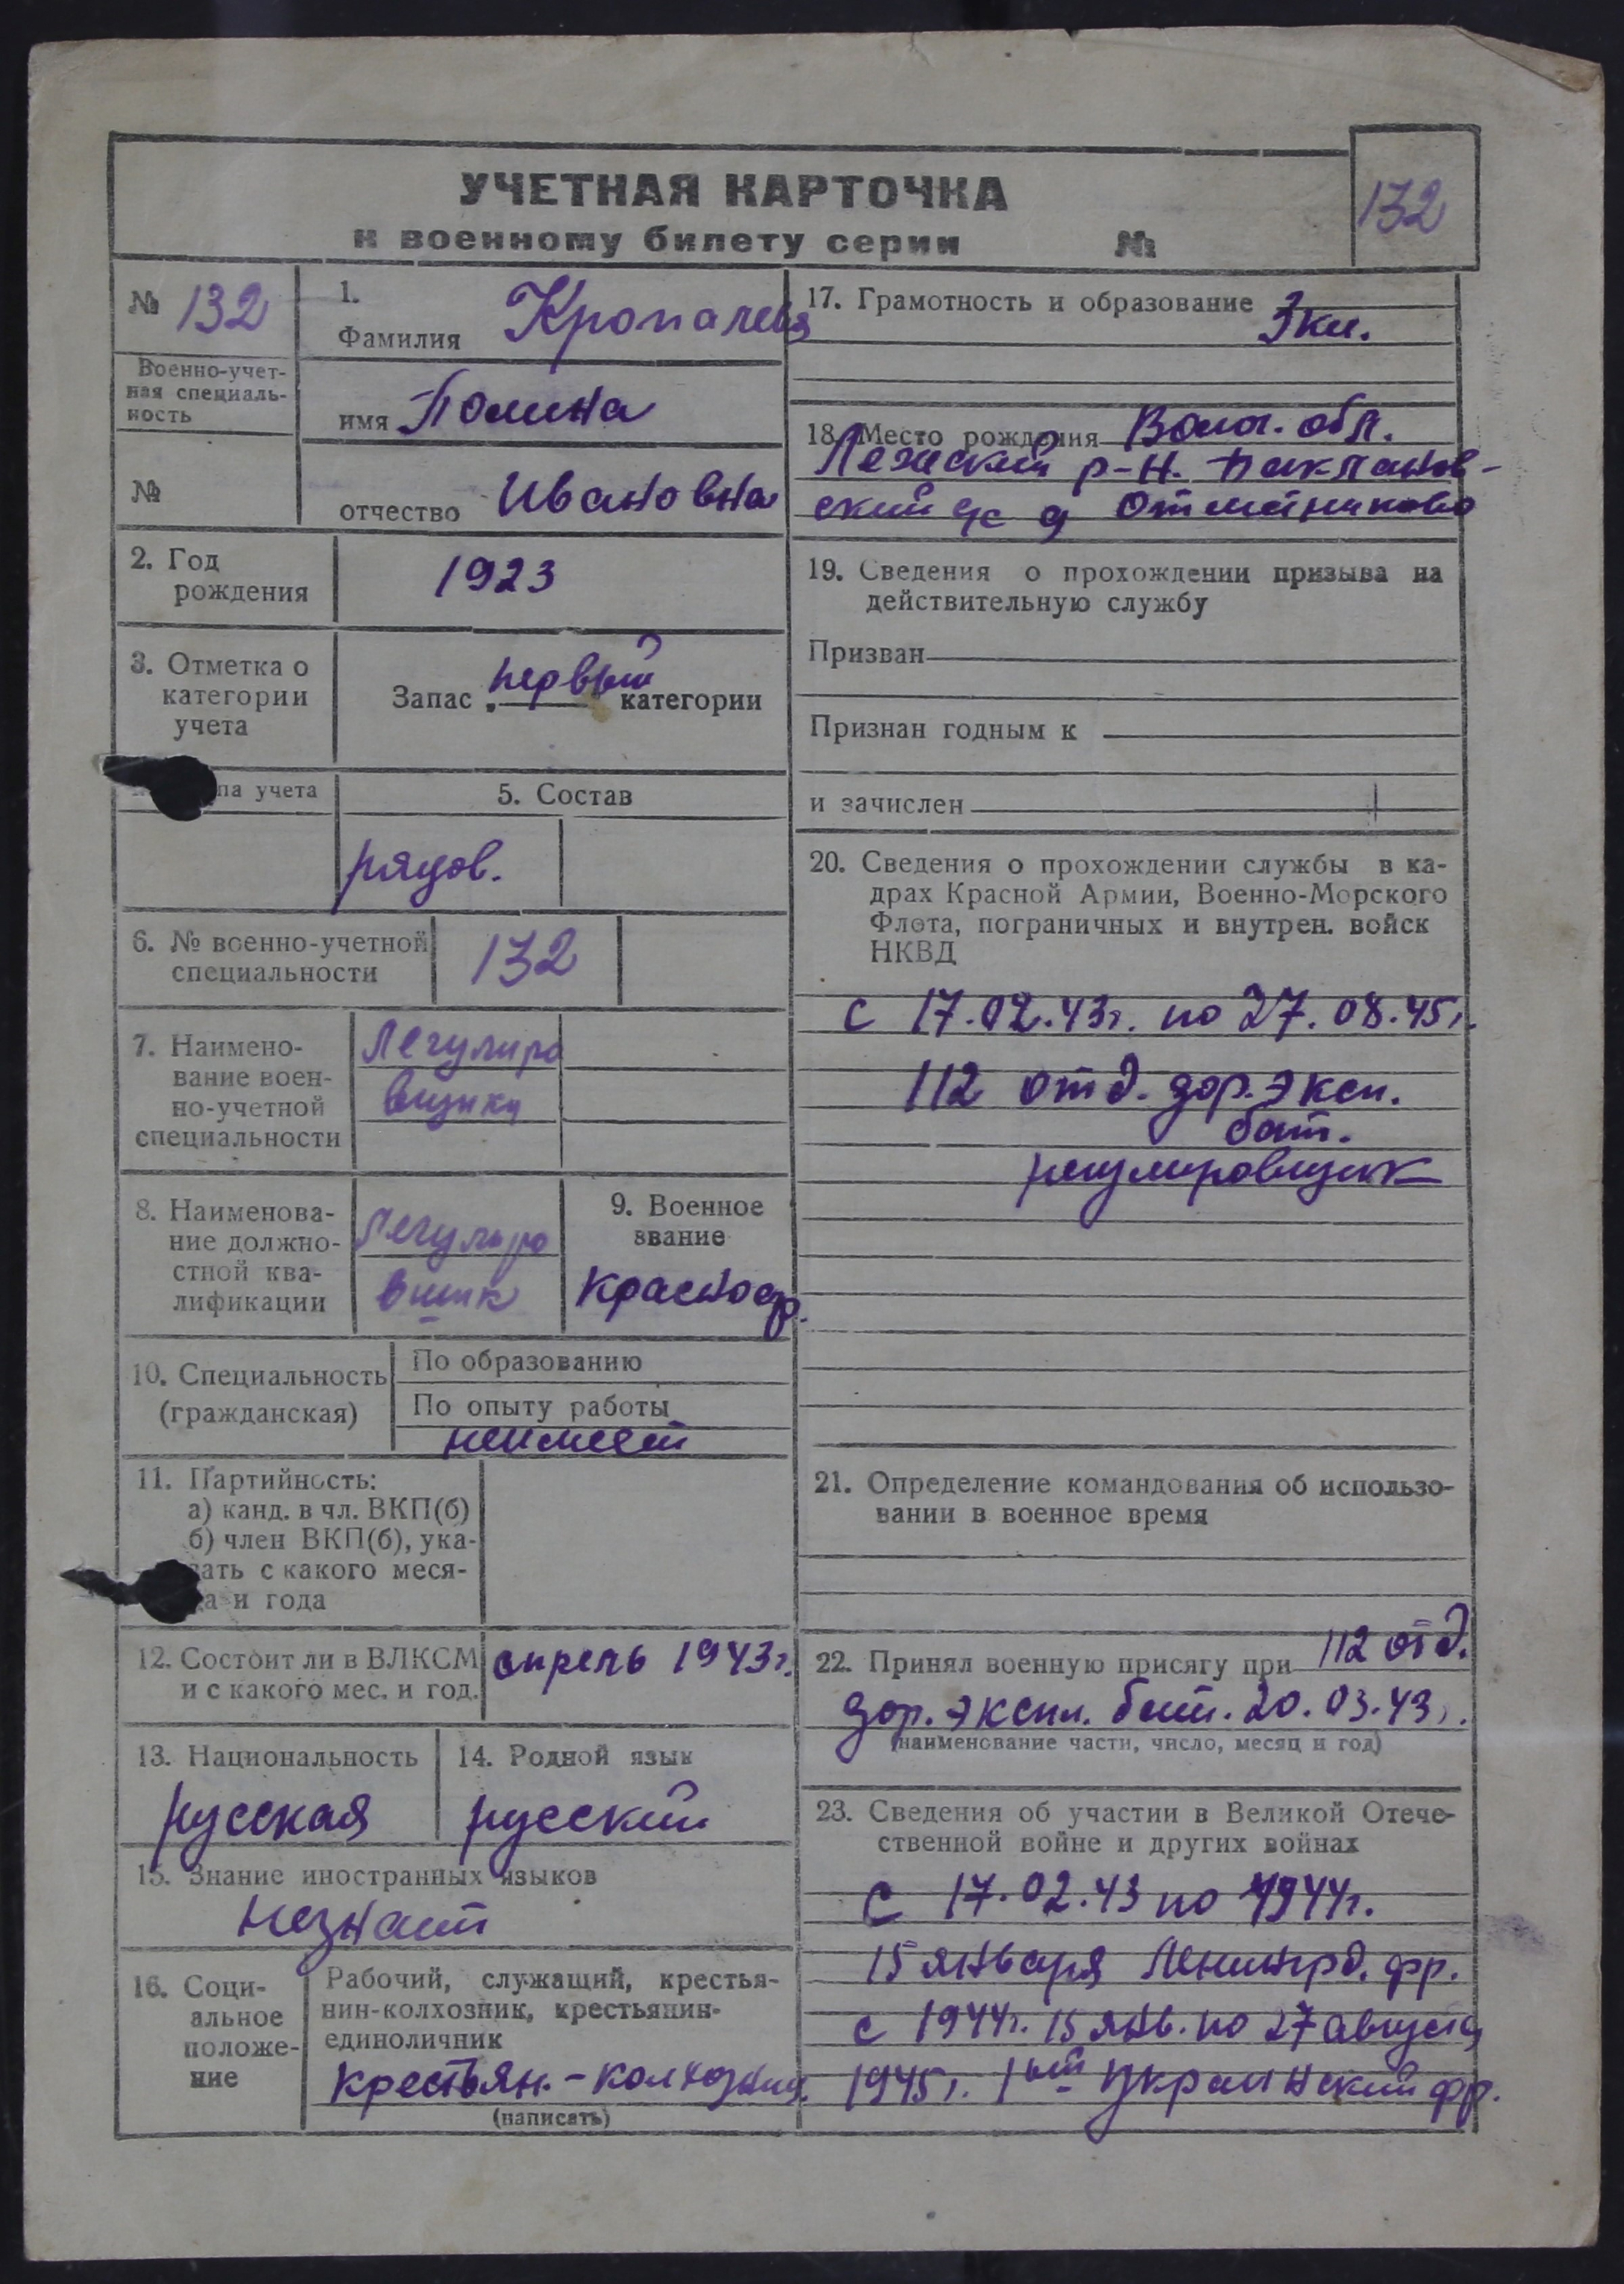 УЧЕТНАЯ КАРТОЧКА
к военному билету серии №
132
№ 132
Военно-учет-
ная специаль-
ность
№
1.
Фамилия Кропачева
имя Полина
отчество Ивановна
2. Год
рождения
1923
3. Отметка о
категории
учета
Запас первый категории
па учета
5. Состав
рядов.
6. № военно-учетной
специальности
132
7. Наимено-
вание воен-
но-учетной
специальности
Регулиро
вщики
8. Наименова-
ние должно-
стной ква-
лификации
Регулиро
вщик
9. Военное
звание
красноар.
10. Специальность
(гражданская)
По образованию
По опыту работы
неимеет
11. Партийность:
а) канд. в чл. ВКП(б)
б) член ВКП(б), ука-
зать с какого меся-
ца и года
12. Состоит ли в ВЛКСМ
и с какого мес. и год.
апрель 1943г.
13. Национальность
русская
14. Родной язык
русский
15. Знание иностранных языков
незнает
16. Соци-
альное
положе-
ние
Рабочий, служащий, крестья-
нин-колхозник, крестьянин-
единоличник
крестьян.-колхозниц.
(написать)
17. Грамотность и образование 3 кл.
18. Место рождения Волог. обл.
Лежский р-н. Баклановский
-
ский с/с д
19. Сведения о прохождении призыва на
действительную службу
Призван
Признан годным к
и зачислен
20. Сведения о прохождении службы в ка-
драх Красной Армии, Военно-Морского
Флота, пограничных и внутрен. войск
НКВД
с 17.02.43г. по 27.08.45г.
112 отд. дор. эксп.
бат.
регулировщик
21. Определение командования об использо-
вании в военное время
22. Принял военную присягу при 112 отд.
дор. экспл. бат. 20.03.43г.
(наименование части, число, месяц и год)
23. Сведения об участии в Великой Отече-
ственной войне и других войнах
С 17.02.43 по 1944г.
15 января Ленинград. фр.
с 1944г. 15 янв. по 27 августа
1945г. 1ый Украинский фр.